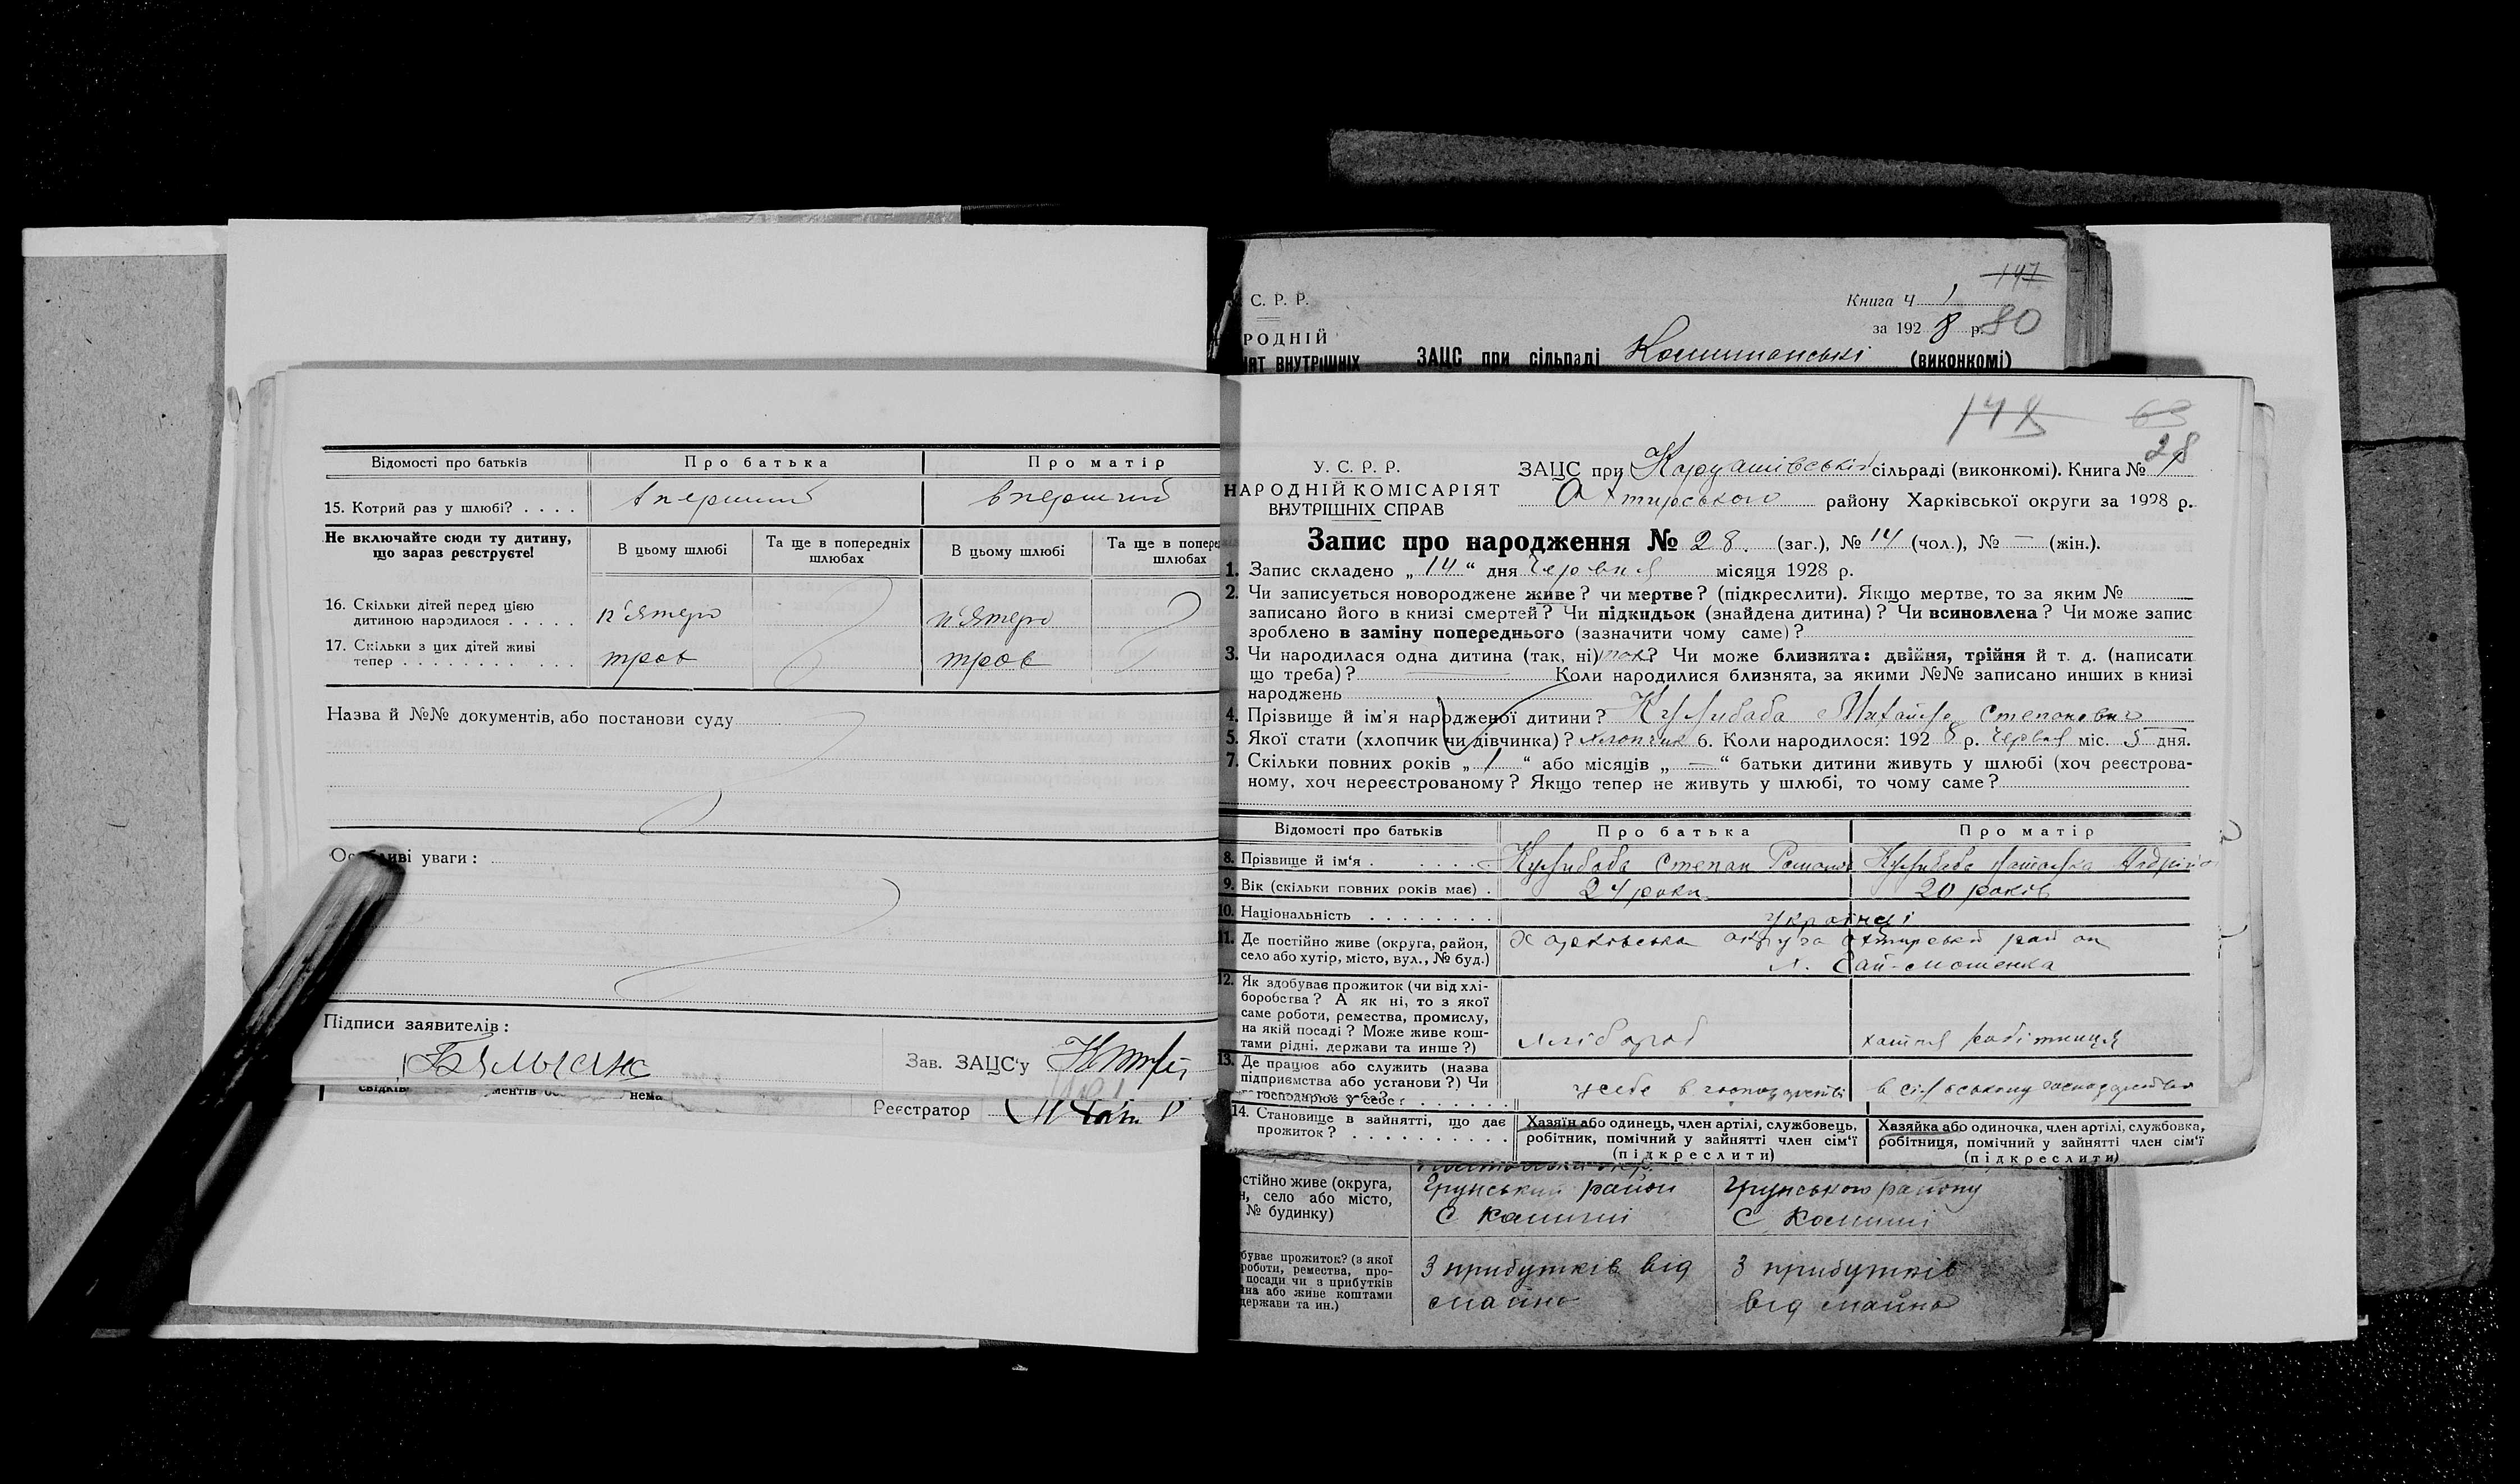 Відомості про батьків Про батька Про матір
15. Котрий раз у шлюбі? . . . . вперший вперший
Не включайте сюди ту дитину,
що зараз реєструєте!
В цьому шлюбі Та ще в попередніх
шлюбах
В цьому шлюбі Та ще в попере
шлюбах
16. Скільки дітей перед цією
дитиною народилося . . . . . п'ятеро п'ятеро
17. Скільки з цих дітей живі
тепер . . . . . . . . . . . троє троє
Назва й №№ документів, або постанови суду
Особливі уваги:
Підписи заявителів:
Зав. ЗАЦС'у
свідків ментів нема
Реєстратор
147
С. Р. Р. Книга Ч 1
за 1928 р. 80
РОДНІЙ
ІЯТ ВНУТРІШНІХ ЗАЦС при сільраді (виконкомі)
148 63
28
У. С. Р. Р.
НАРОДНІЙ КОМІСАРІЯТ
ВНУТРІШНІХ СПРАВ
ЗАЦС при сільраді (виконкомі). Книга № 1
Охтирського району Харківської округи за 1928 р.
Запис про народження № 28. (заг.), № 14 (чол.), № — (жін.).
1. Запис складено „14“ дня Червня місяця 1928 р.
2. Чи записується новороджене живе? чи мертве? (підкреслити). Якщо мертве, то за яким №
записано його в книзі смертей? Чи підкидьок (знайдена дитина)? Чи всиновлена? Чи може запис
зроблено в заміну попереднього (зазначити чому саме)?
3. Чи народилася одна дитина (так, ні) так? Чи може близнята: двійня, трійня й т. д. (написати
що треба)? Коли народилися близнята, за якими №№ записано инших в книзі
народжень
4. Прізвище й ім'я народженої дитини? Кулибаба Михайло Степанович
5. Якої стати (хлопчик чи дівчинка)? хлопчик 6. Коли народилося: 1928 р. червня міс. 5 дня.
7. Скільки повних років „1“ або місяців „—“ батьки дитини живуть у шлюбі (хоч реєстрова-
ному, хоч нереєстрованому? Якщо тепер не живуть у шлюбі, то чому саме?
Відомості про батьків Про батька Про матір
8. Прізвище й ім'я . . . . . . Кулибаба Степан Роман Кулибаба Наталка Андрії
9. Вік (скільки повних років має) . 24 роки 20 років
10. Національність . . . . . . . . Українці
11. Де постійно живе (округа, район,
село або хутір, місто, вул., № буд.)
Харківська округа Охтирськи район
х. Гай-мошенка
12. Як здобуває прожиток (чи від хлі-
боробства? А як ні, то з якої
саме роботи, ремества, промислу,
на якій посаді? Може живе кош-
тами рідні, держави та инше?)
хлібороб хатня робітниця
13. Де працює або служить (назва
підприємства або установи?) Чи
господарює у себе? . . . . . . .
у себе в господарстві в сільському господарстві
14. Становище в зайнятті, що дає
прожиток? . . . . . . . . . . .
Хазяїн або одинець, член артілі, службовець,
робітник, помічний у зайнятті член сім'ї
(підкреслити)
Хазяйка або одиночка, член артілі, службовка,
робітниця, помічний у зайнятті член сім'ї
(підкреслити)
стійно живе (округа,
н, село або місто,
№ будинку)
Грунський район
С Комиші
Грунського району
С Комиші
буває прожиток? (з якої
роботи, ремества, про-
посади чи з прибутків
на або живе коштами
держави та ин.)
З прибутків від
майна
З прибутків
від майна